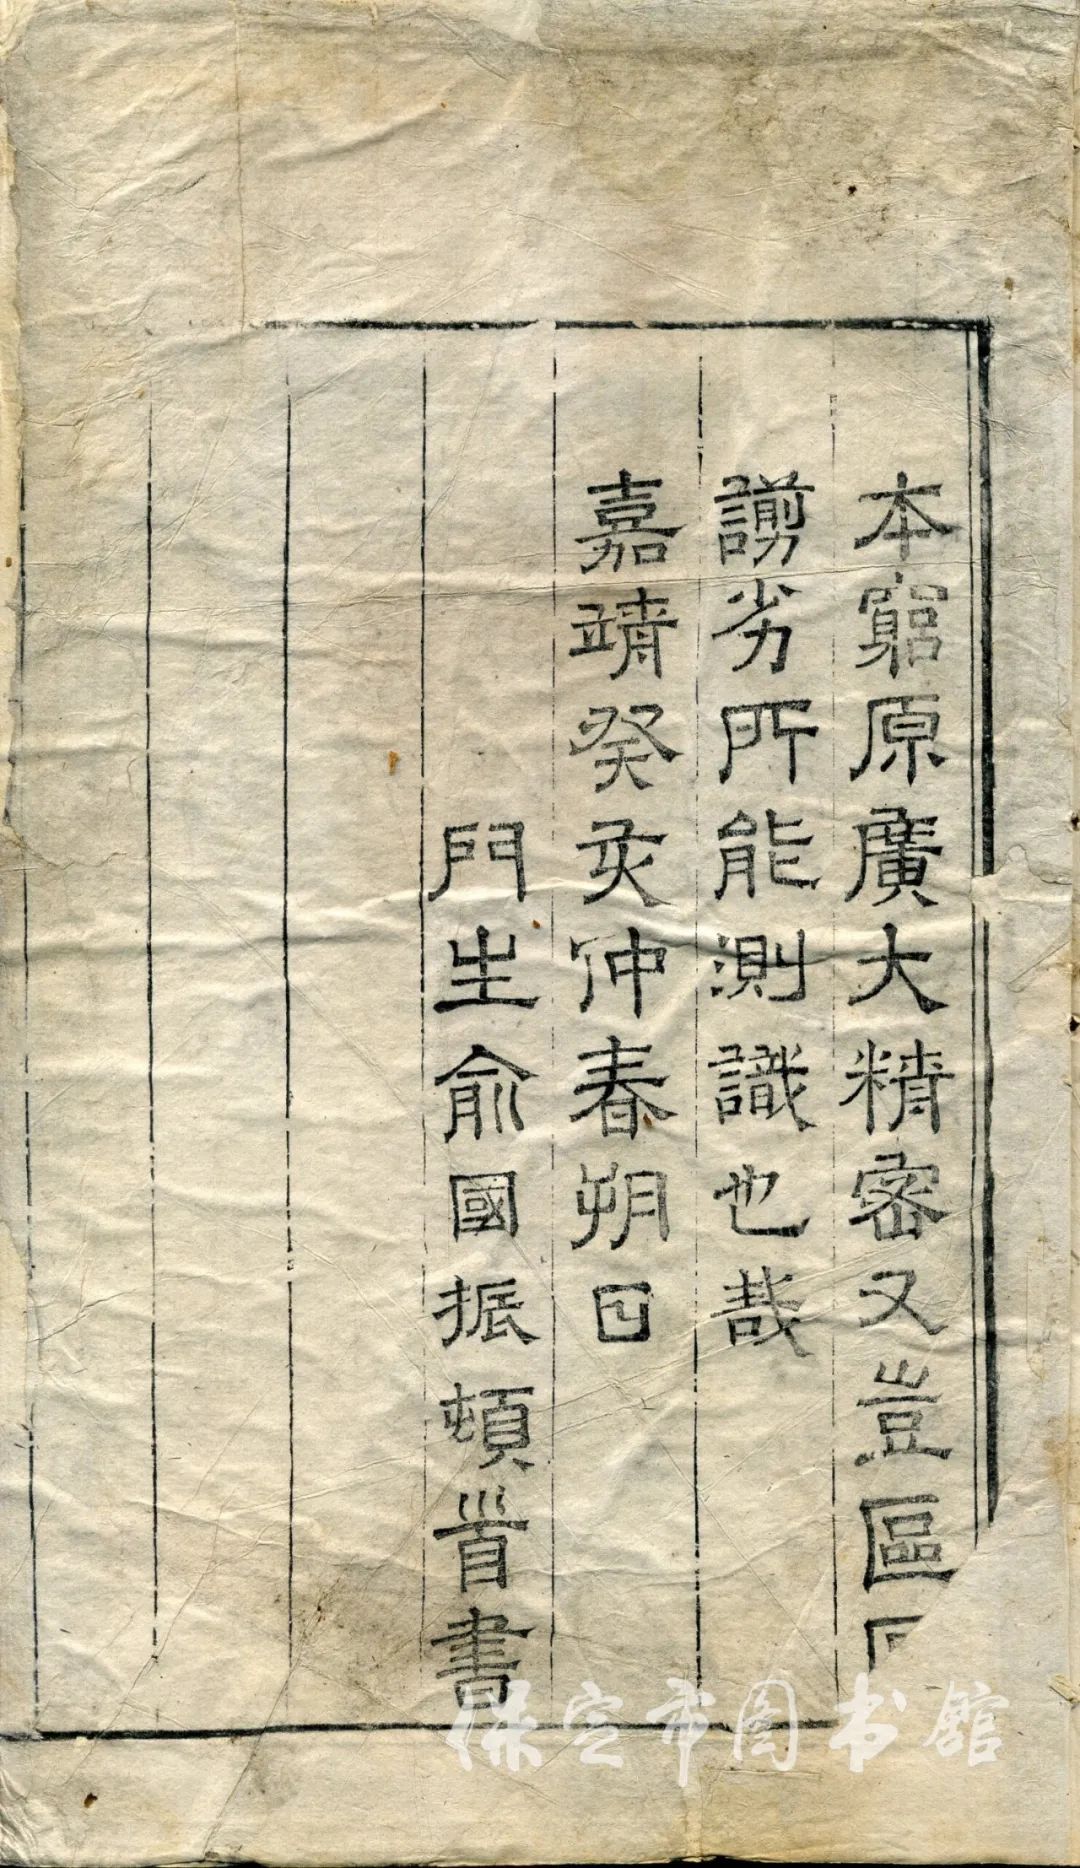 本窮原廣大精密又豈區
謭劣所能測識也哉
嘉靖癸亥仲春朔日
門生俞國振頓首書
保定市图书馆